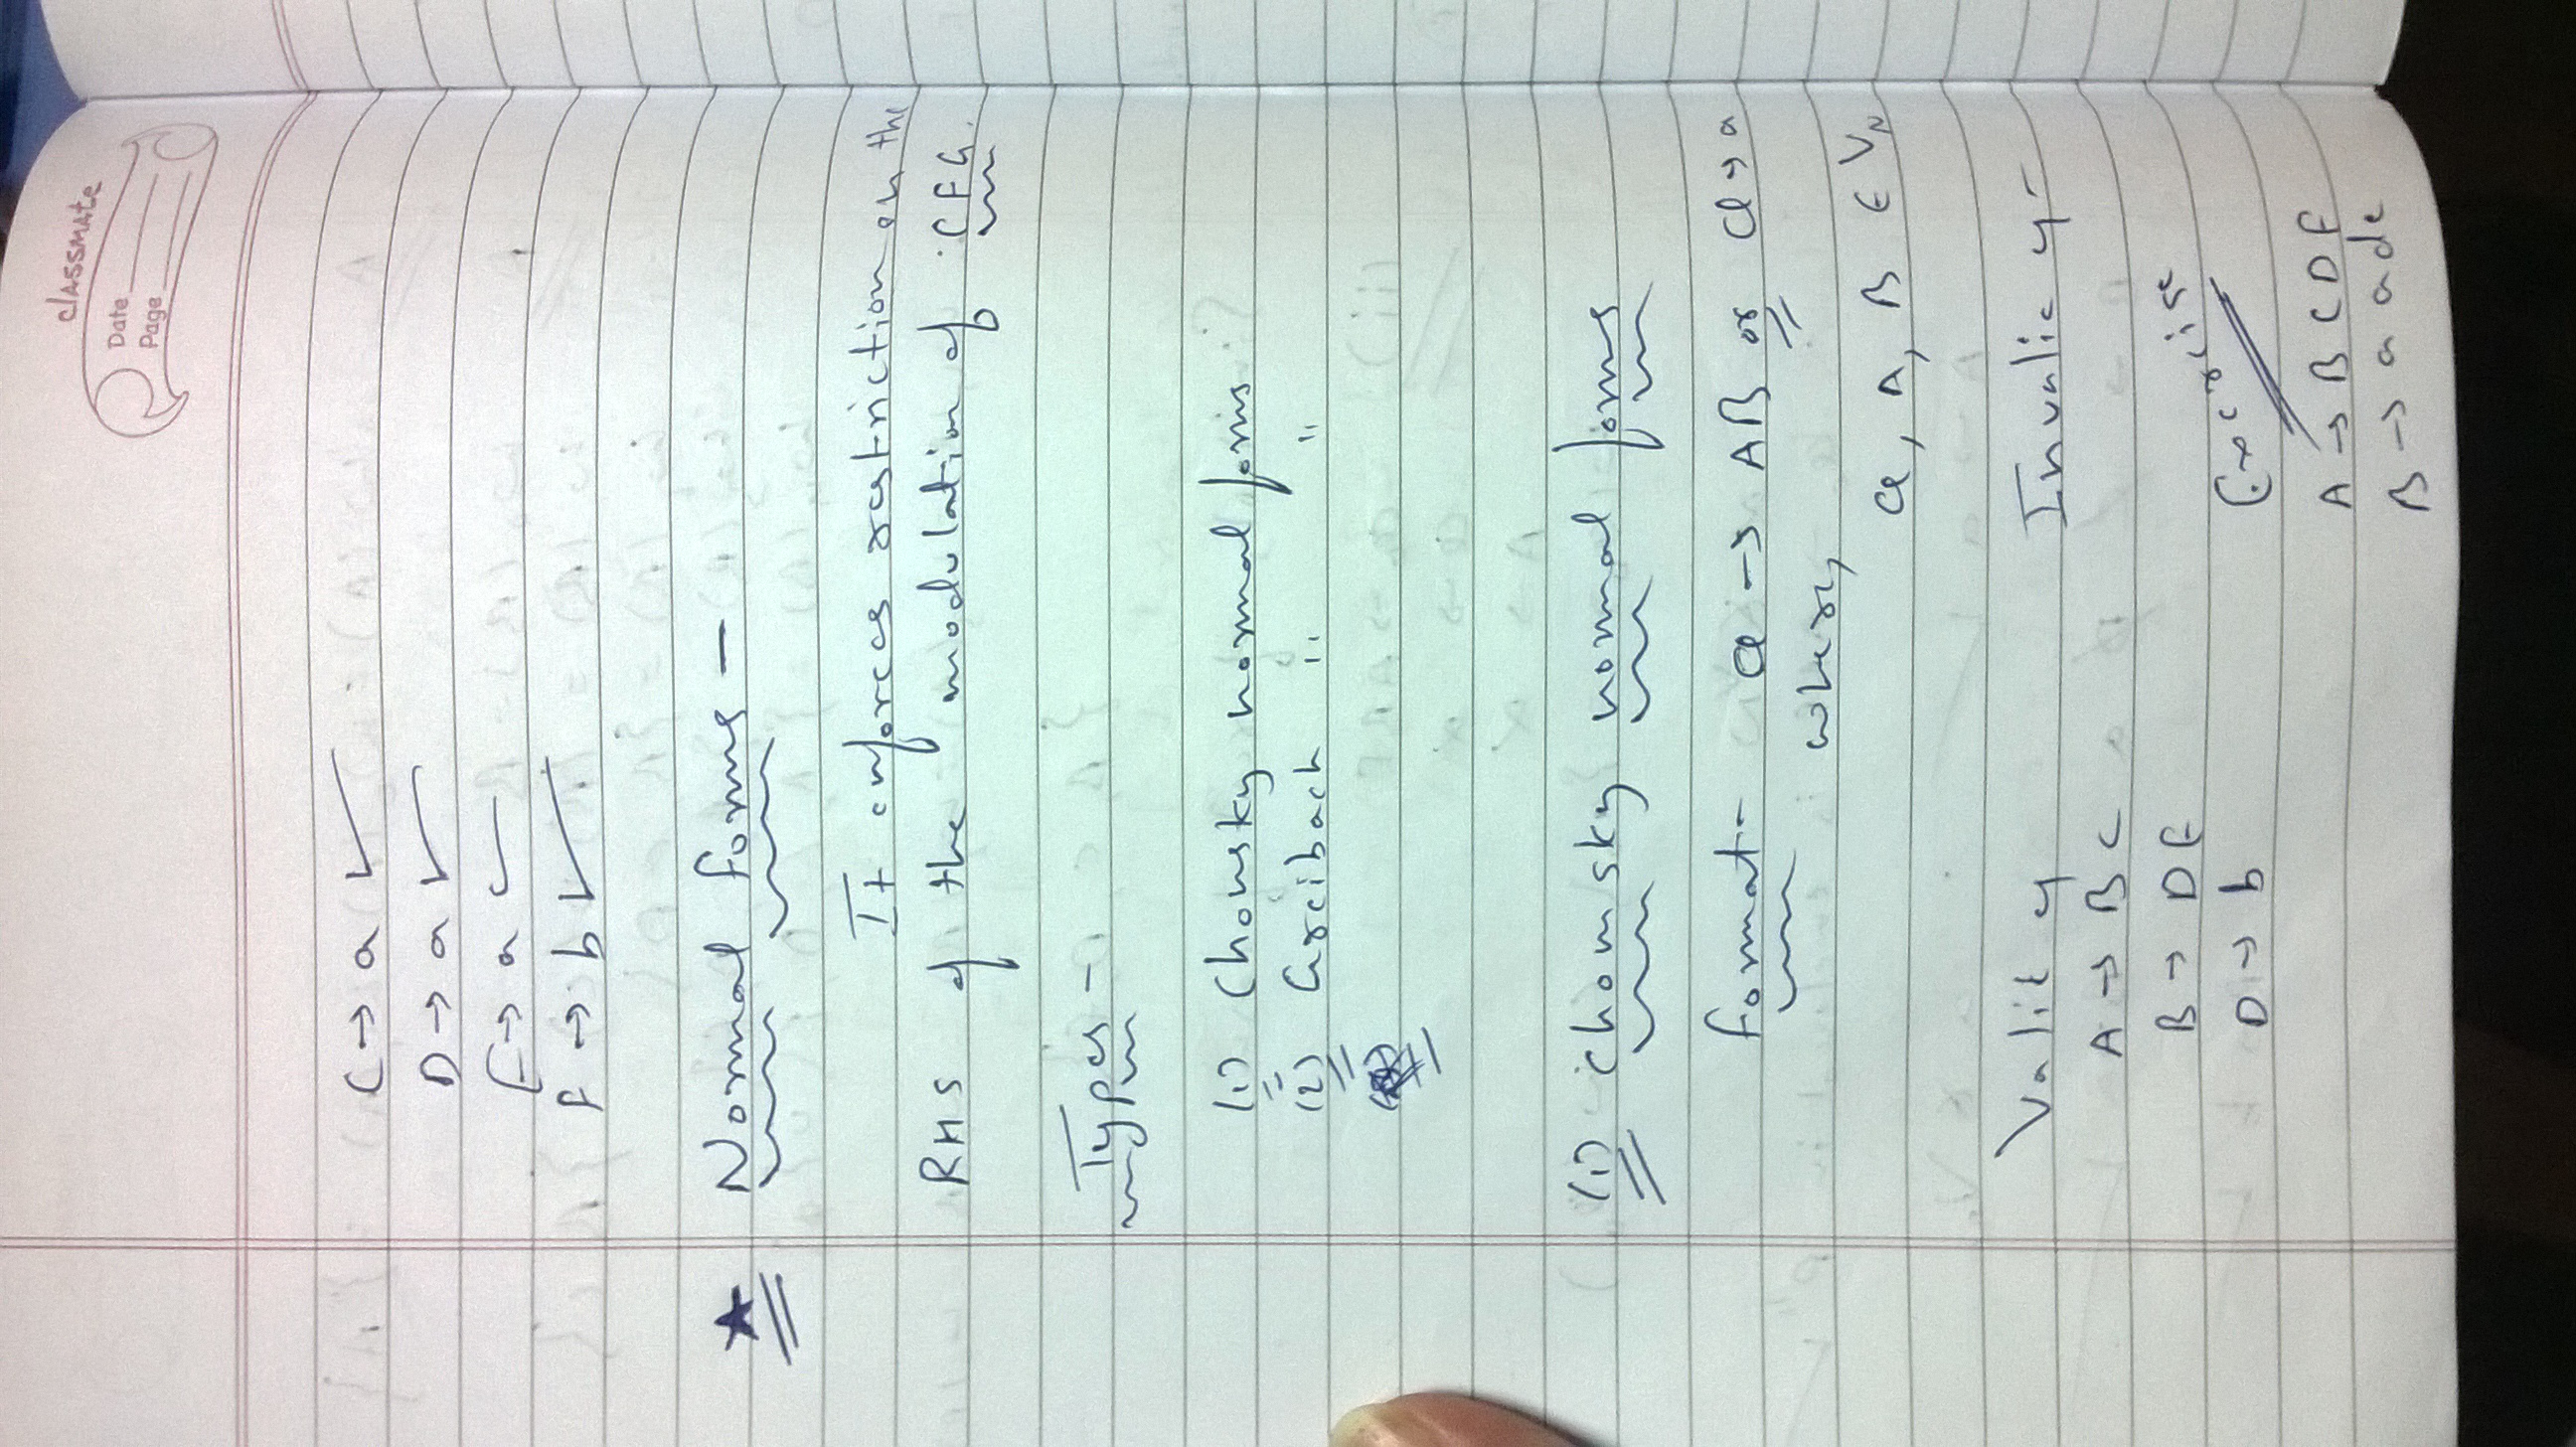 classmate
Date
Page
C → a ✓
D → a ✓
E → a ✓
F → b ✓
★ Normal forms —
It enforces restriction on the
RHS of the modulation of CFG.
Types -
(1) Chomsky normal forms
(2) Greibach " "
(1) Chomsky normal forms
Format - a → AB or a → a
where,
a, A, B ∈ VN
Valid
Invalid
A → BC
B → DE
D → b
Exercise
A → BCDE
B → a ade